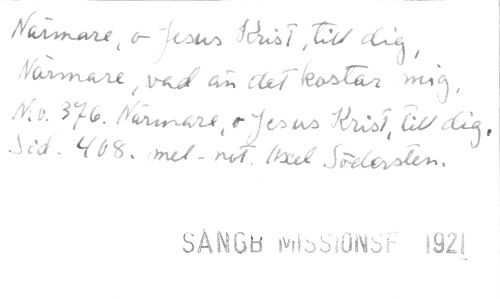 Närmare, o Jesus Krist, till dig,
Närmare, vad än det kostar mig,
N.o. 376. Närmare, o Jesus Krist, till dig.
Sid. 408. mel-not. Axel Södersten.
SÅNGB MISSIONSF 1921